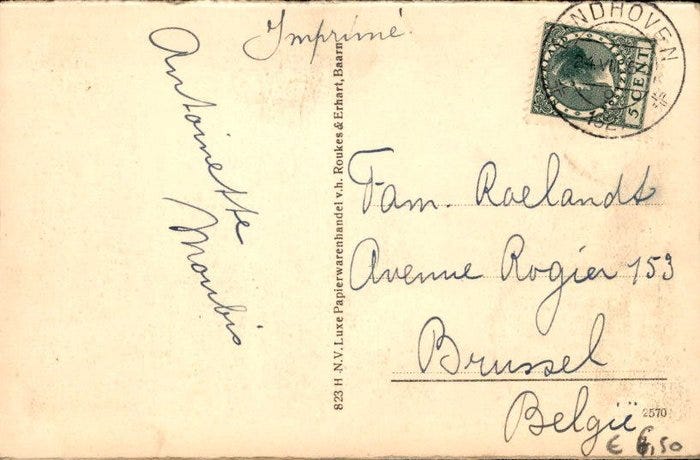 Imprimé
Antoinette
Moubis
823 H N.V. Luxe Papierwarenhandel v.h. Roukes & Erhart, Baarn
NDHOVEN
5 CENT
Fam. Roelandt
Avenue Rogier 153
Brussel
België
2570
€ 6,50